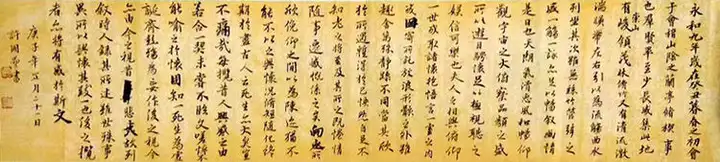 永和九年歲在癸丑暮春之初會
于會稽山陰之蘭亭修稧事
也群賢畢至少長咸集此地
崇山
有峻領茂林脩竹又有清流激
湍暎帶左右引以為流觴曲水
列坐其次雖無絲竹管弦之
盛一觴一詠亦足以暢敘幽情
是日也天朗氣清惠風和暢仰
觀宇宙之大俯察品類之盛
所以遊目騁懷足以極視聽之
娛信可樂也夫人之相與俯仰
一世或取諸懷抱悟言一室之內
或因寄所託放浪形骸之外雖
趣舍萬殊靜躁不同當其欣
於所遇暫得於己快然自足不
知老之將至及其所之既惓情
隨事遷感慨係之矣向之所
欣俛仰之間以為陳迹猶不
能不以之興懷況脩短隨化終
期於盡古人云死生亦大矣豈
不痛哉每攬昔人興感之由
若合一契未嘗不臨文嗟悼不
能喻之於懷固知一死生為虛
誕齊彭殤為妄作後之視今
亦由今之視昔悲夫故列
敘時人錄其所述雖世殊事
異所以興懷其致一也後之攬
者亦將有感於斯文
庚子年 月二十一日
許國 書